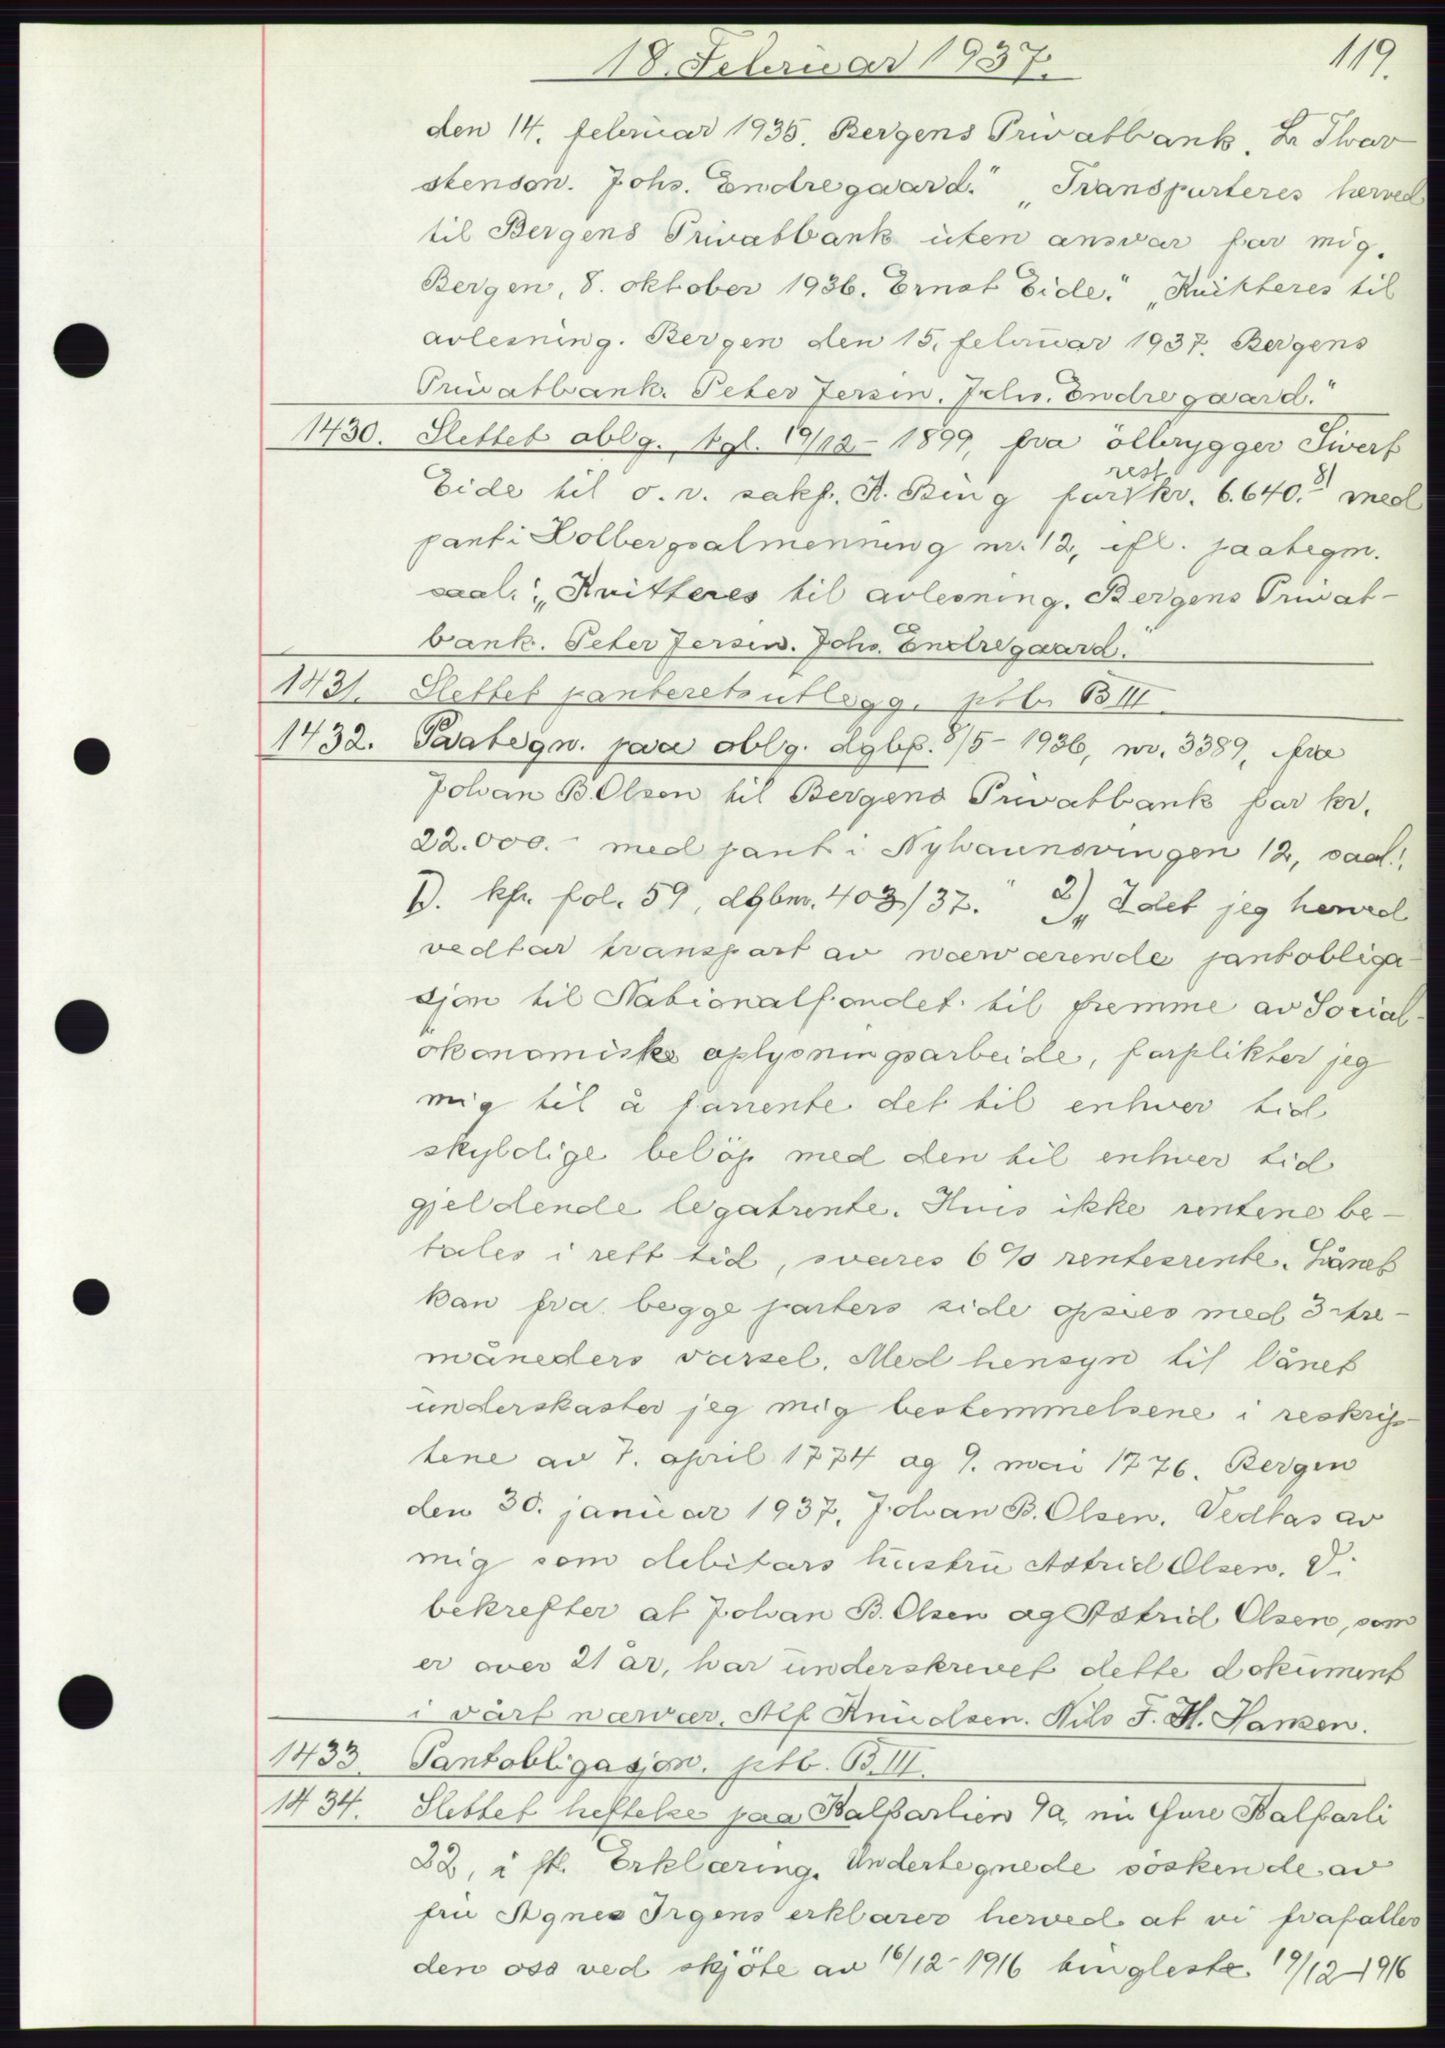 18. Februar 1937.
119.
den 14. februar 1935. Bergens Privatbank. Thor
stenson. Johs. Endregaard." „Transporteres herved
til Bergens Privatbank uten ansvar for mig.
Bergen, 8. oktober 1936. Ernst Eide." „Kvitteres til
avlesning. Bergen den 15. februar 1937. Bergens
Privatbank. Peter Jersin. Johs. Endregaard."
1430. Slettet oblg., tgl. 19/12-1899, fra ölbrygger Sivert
Eide til o.r. sakf. A. Bing for rest kr. 6.640.81 med
pant i Holbergsalmenning nr. 12, ifl. paategn.
saal.: „Kvitteres til avlesning. Bergens Privat-
bank. Peter Jersin. Johs. Endregaard."
1431. Slettet panteretsutlegg. ptb. B III.
1432. Paategn. paa oblg. dgbf. 8/5-1936, nr. 3389, fra
Johan B. Olsen til Bergens Privatbank for kr.
22.000.- med pant i Nyhaunsvingen 12, saal.:
1). kfr. fol. 59, dgbnr. 403/37." 2) „Idet jeg herved
vedtar transport av nærværende pantobliga-
sjon til Nationalfondet til fremme av Social-
ökonomiske oplysningsarbeide, forplikter jeg
mig til å forrente det til enhver tid
skyldige belöp med den til enhver tid
gjeldende legatrente. Hvis ikke rentene be-
tales i rett tid, svares 6% rentesrente. Lånet
kan fra begge parters side opsies med 3-tre-
måneders varsel. Med hensyn til lånet
underkaster jeg mig bestemmelsene i reskrip-
tene av 7. april 1774 og 9. mai 1776. Bergen
den 30. januar 1937. Johan B. Olsen. Vedtas av
mig som debitors hustru Astrid Olsen. Vi
bekrefter at Johan B. Olsen og Astrid Olsen, som
er over 21 år, har underskrevet dette dokument
i vårt nærvær. Alf Knudsen. Nils F. H. Hansen.
1433. Pantobligasjon. ptb. B. III.
1434. Slettet heftelse paa Kalfarlien 9a, nu Övre Kalfarli
22, i fl. Erklæring. Undertegnede söskende av
fru Agnes Irgens erklærer herved at vi frafaller
den oss ved skjöte av 16/12-1916 tinglest 19/12-1916